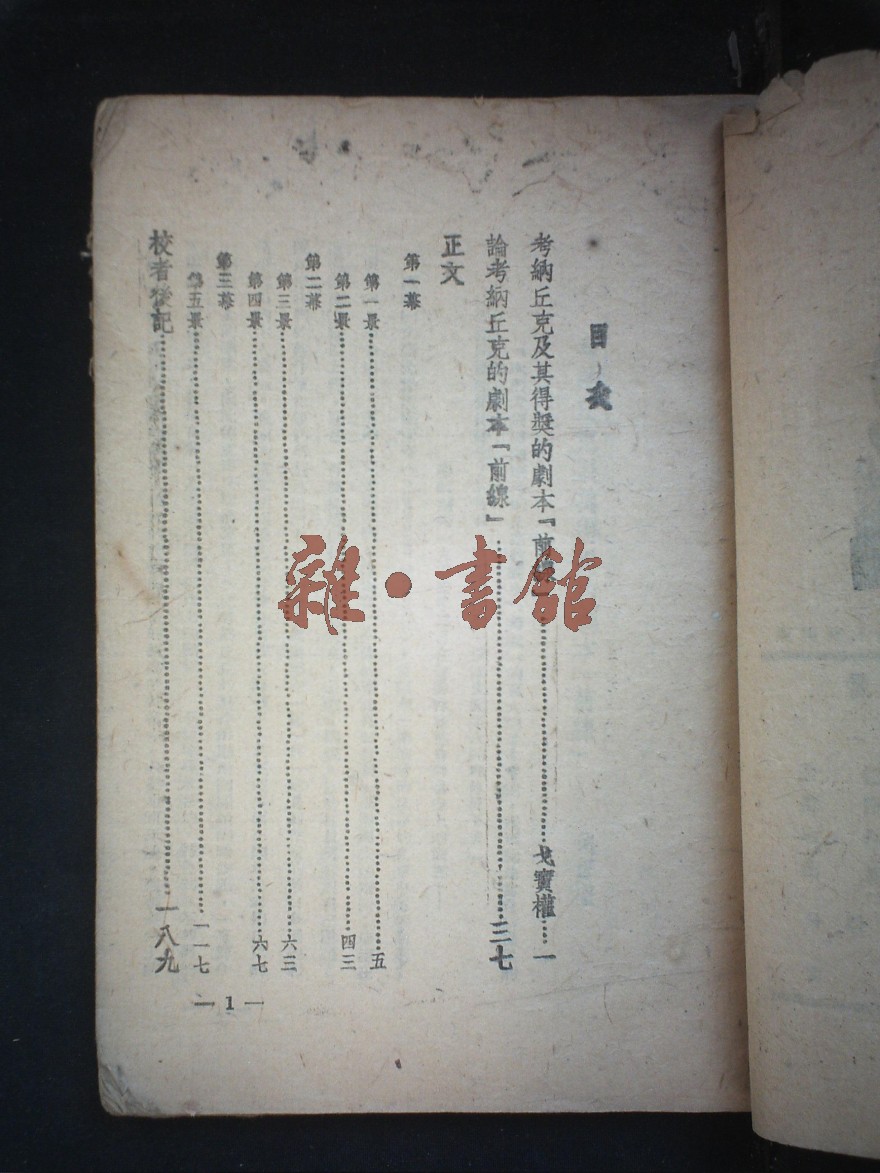 目次
考納丘克及其得獎的劇本「前線」……戈寶權……一
論考納丘克的劇本「前線」……三七
正文
第一幕
第一景……五
第二景……四三
第二幕
第三景……六三
第四景……六七
第三幕
第五景……一一七
校者後記……一八九
— 1 —
雜·書館